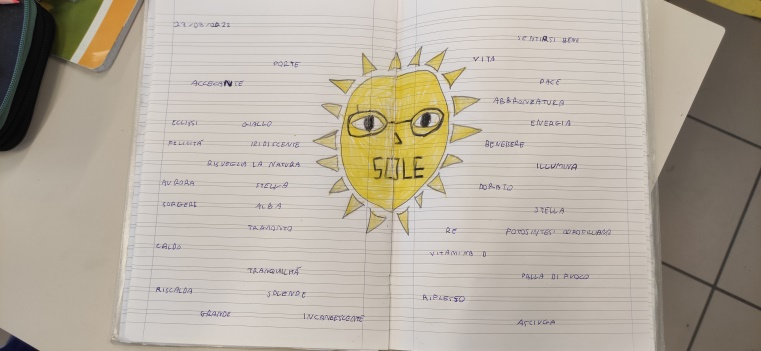 FORTE
ACCECANTE
ECLISSI GIALLO
FELICITÁ IRIDESCENTE
RISVEGLIA LA NATURA
AURORA STELLA
SORGERE ALBA
TRAMONTO
CALDO
TRANQUILLITÁ
RISCALDA SPLENDE
GRANDE INCANDESCENTE
SOLE
SENTIRSI BENE
VITA
PACE
ABBRONZATURA
ENERGIA
BENESSERE
ILLUMINA
DORATO
STELLA
RE FOTOSINTESI CLOROFILLIANA
VITAMINA D
PALLA DI FUOCO
RIFLESSO
ASCIUGA